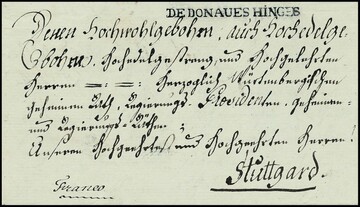 DE DONAUESHINGEB
Denen Hochwohlgebohrn, auch Hochedelge-
bohrn, Hochedelgestreng und Hochgelehrten
Herren Herzoglich Würtenbergischen
Geheimen Rath, Regierungs-Presidenten, Geheimen-
und Regierungs-Räthen:
Unseren Hochgeehrtest und Hochgeehrten Herren!
Stuttgard.
Franco